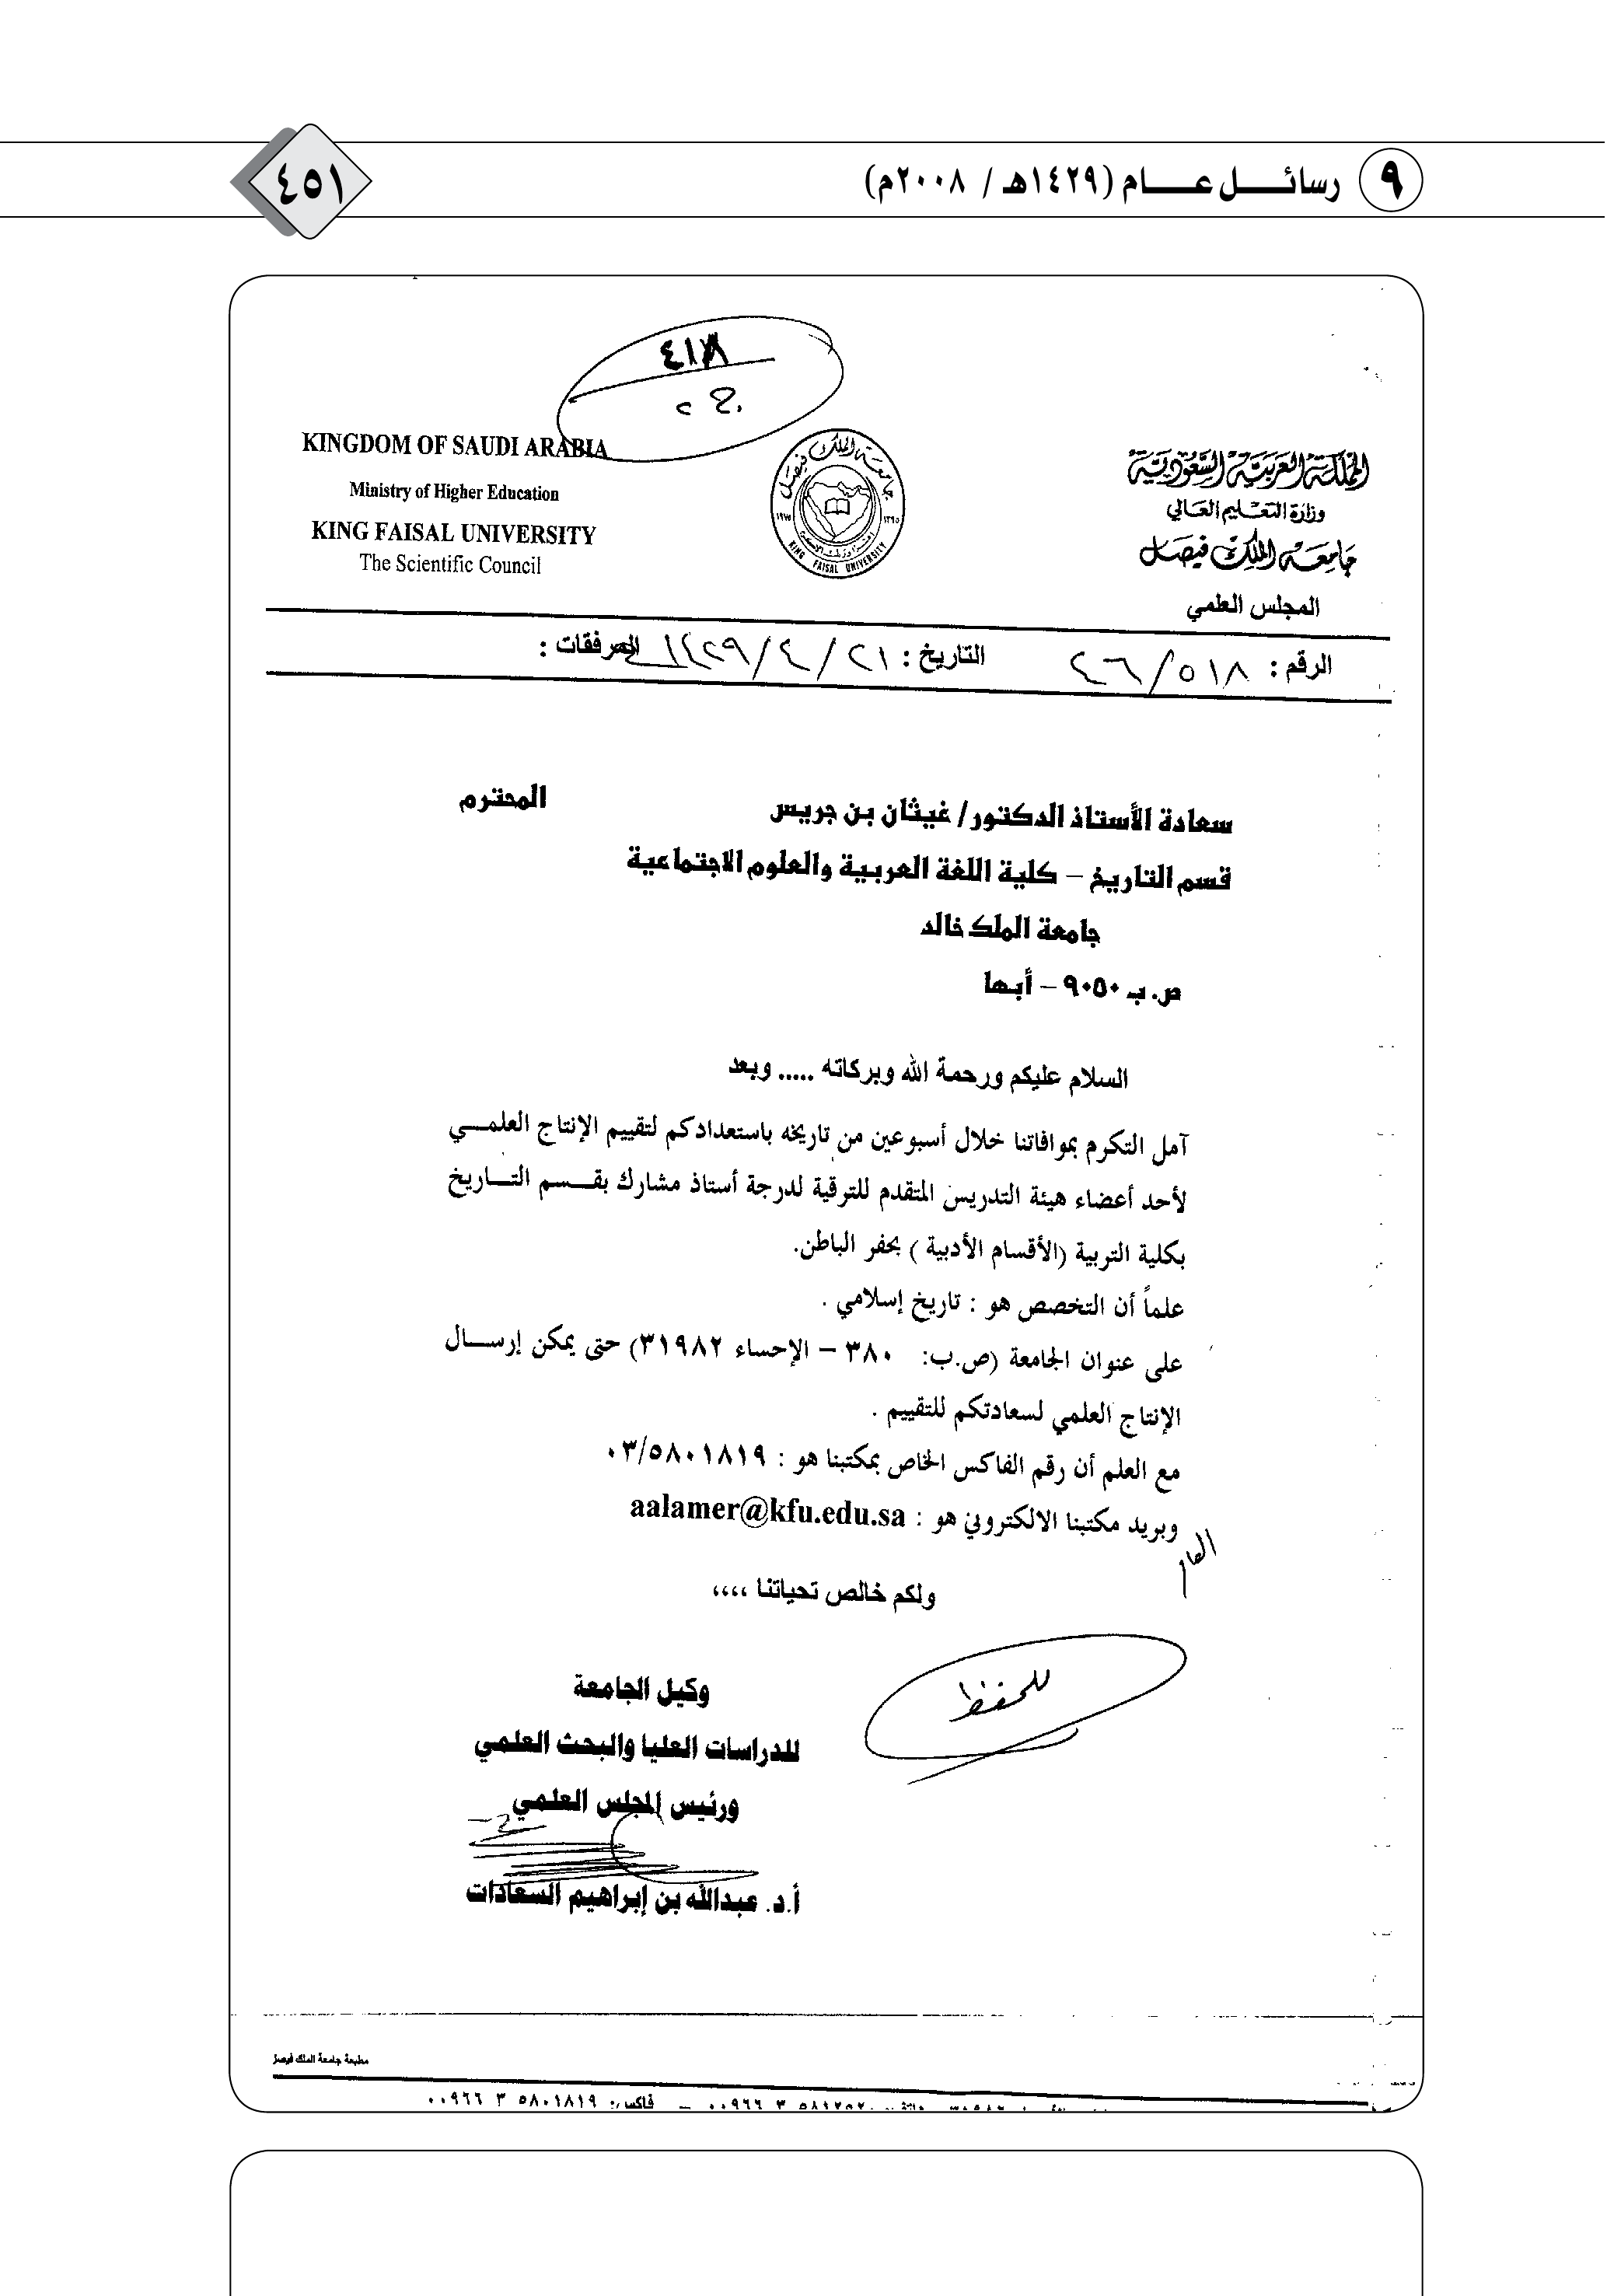 ٩ رسائل عام (١٤٢٩هـ / ٢٠٠٨م)
٤٥١
KINGDOM OF SAUDI ARABIA
Ministry of Higher Education
KING FAISAL UNIVERSITY
The Scientific Council
جامعة الملك فيصل
١٣٩٥ ١٩٧٥
KING FAISAL UNIVERSITY
المملكة العربية السعودية
وزارة التعليم العالي
جامعة الملك فيصل
المجلس العلمي
الرقم : ٤٦/٥١٨ التاريخ : ٢١/٤/١٤٢٩ المرفقات :
سعادة الأستاذ الدكتور/ غيثان بن جريس المحترم
قسم التاريخ – كلية اللغة العربية والعلوم الاجتماعية
جامعة الملك خالد
ص. ب ٩٠٥٠ – أبها
السلام عليكم ورحمة الله وبركاته ..... وبعد
آمل التكرم بموافاتنا خلال أسبوعين من تاريخه باستعدادكم لتقييم الإنتاج العلمي
لأحد أعضاء هيئة التدريس المتقدم للترقية لدرجة أستاذ مشارك بقسم التاريخ
بكلية التربية (الأقسام الأدبية ) بحفر الباطن.
علماً أن التخصص هو : تاريخ إسلامي .
على عنوان الجامعة (ص.ب: ٣٨٠ – الإحساء ٣١٩٨٢) حتى يمكن إرسال
الإنتاج العلمي لسعادتكم للتقييم .
مع العلم أن رقم الفاكس الخاص بمكتبنا هو : ٠٣/٥٨٠١٨١٩
وبريد مكتبنا الالكتروني هو : aalamer@kfu.edu.sa
ولكم خالص تحياتنا ،،،،
للحفظ
وكيل الجامعة
للدراسات العليا والبحث العلمي
ورئيس المجلس العلمي
أ.د. عبدالله بن إبراهيم السعادات
مطبعة جامعة الملك فيصل
فاكس: ٥٨٠١٨١٩ ٣ ٠٠٩٦٦